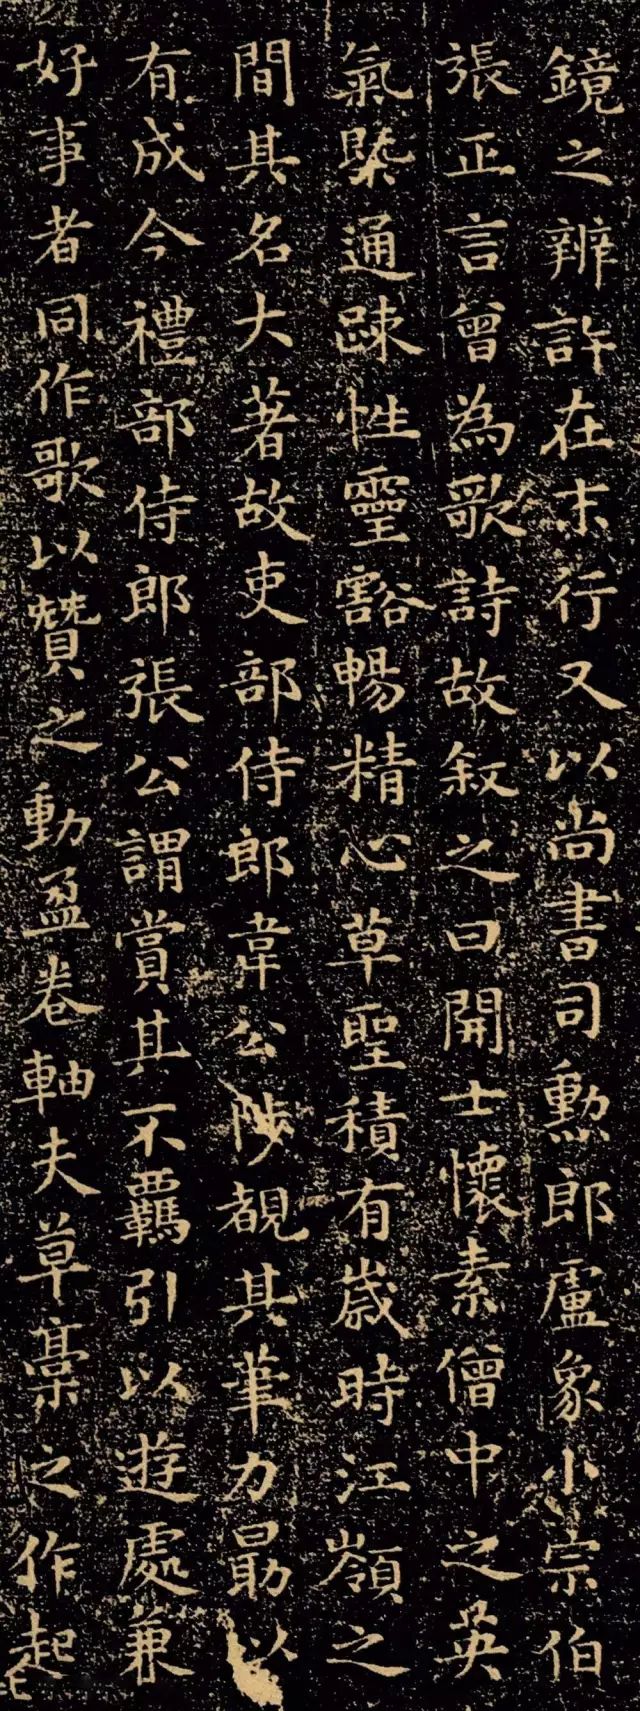 鏡之辨許在末行又以尚書司勲郎盧象小宗伯
張正言曾為歌詩故叙之曰開士懷素僧中之英
氣槩通踈性靈豁暢精心草聖積有歲時江嶺之
間其名大著故吏部侍郎韋公陟覩其筆力勗以
有成今禮部侍郎張公謂賞其不覊引以遊處兼
好事者同作歌以贊之動盈卷軸夫草稾之作起